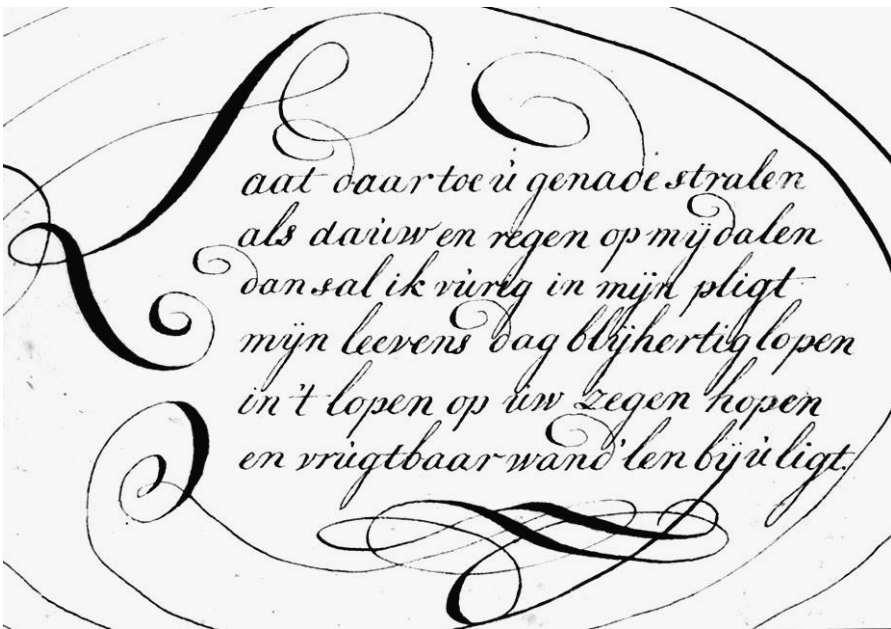 Laat daar toe ù genade stralen
als daùw en regen op mÿ dalen
dan sal ik vùrig in mÿn pligt
mÿn leevens dag blÿhertig lopen
in 't lopen op ùw zegen hopen
en vrùgtbaar wand'len bÿ ù ligt.